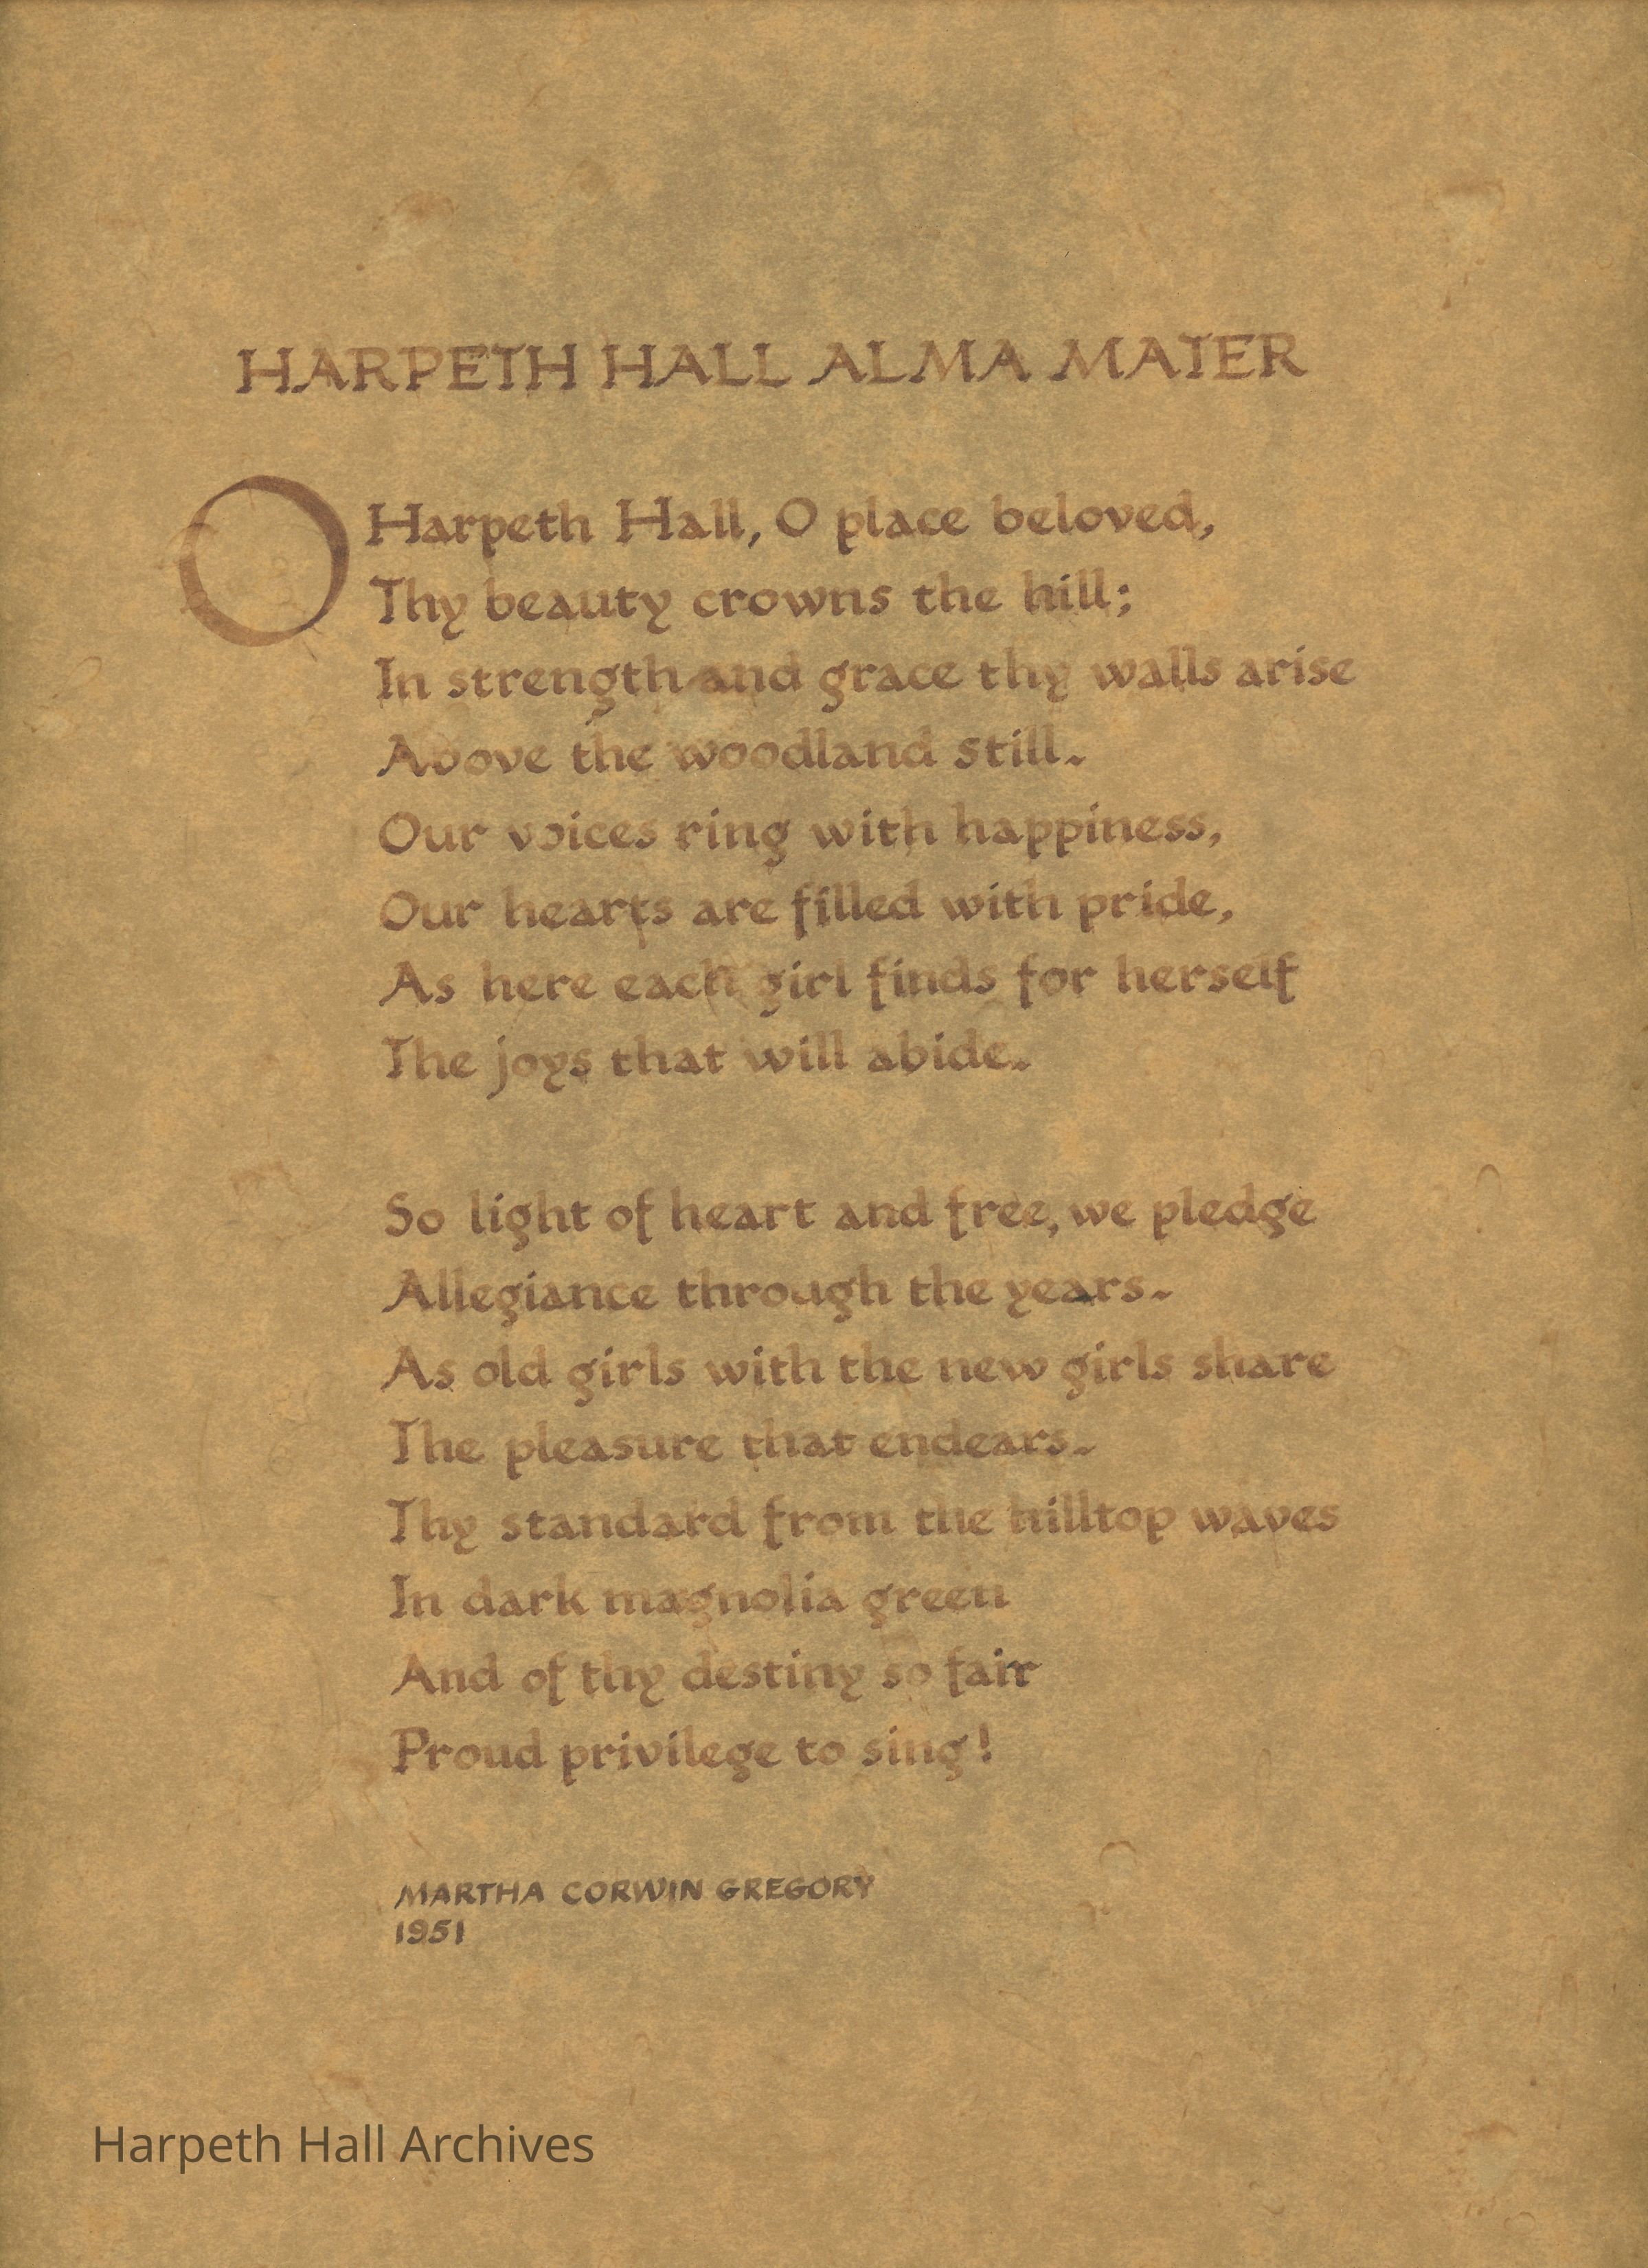 HARPETH HALL ALMA MATER
O Harpeth Hall, O place beloved,
Thy beauty crowns the hill;
In strength and grace thy walls arise
Above the woodland still.
Our voices ring with happiness,
Our hearts are filled with pride,
As here each girl finds for herself
The joys that will abide.
So light of heart and free, we pledge
Allegiance through the years.
As old girls with the new girls share
The pleasure that endears.
Thy standard from the hilltop waves
In dark magnolia green
And of thy destiny so fair
Proud privilege to sing!
MARTHA CORWIN GREGORY
1951
Harpeth Hall Archives